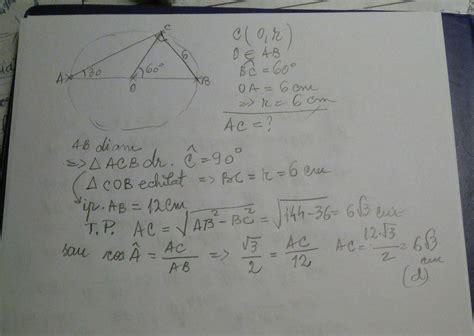 C
A
30
60°
6
O
B
C(O, r)
O ∈ AB
BC = 60°
OA = 6 cm
⇒ r = 6 cm
AC = ?
AB diam
⇒ △ ACB dr. Ĉ = 90°
△ COB echilat ⇒ BC = r = 6 cm
ip. AB = 12 cm
T.P. AC = √(AB² - BC²) = √(144 - 36) = 6√3 cm
sau cos  = AC/AB ⇒ √3/2 = AC/12 AC = 12√3/2 = 6√3 cm
(d)